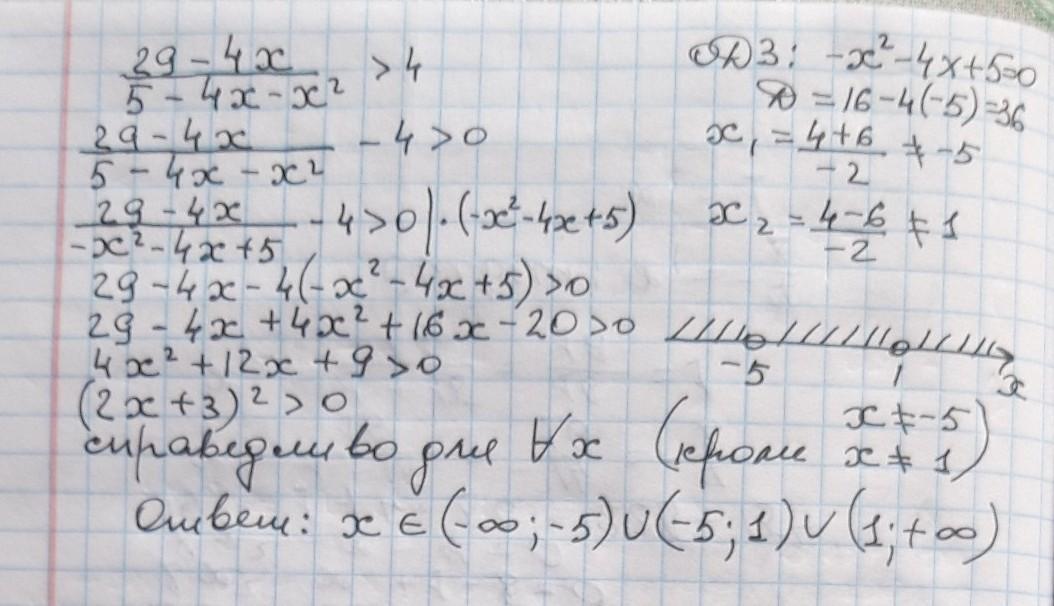 29 - 4x / 5 - 4x - x² > 4
29 - 4x / 5 - 4x - x² - 4 > 0
29 - 4x / -x² - 4x + 5 - 4 > 0 | · (-x² - 4x + 5)
29 - 4x - 4(-x² - 4x + 5) > 0
29 - 4x + 4x² + 16x - 20 > 0
4x² + 12x + 9 > 0
(2x + 3)² > 0
справедливо для ∀x (кроме x ≠ -5
x ≠ 1)
ОДЗ: -x² - 4x + 5 = 0
D = 16 - 4(-5) = 36
x₁ = 4 + 6 / -2 ≠ -5
x₂ = 4 - 6 / -2 ≠ 1
-5 1 x
Ответ: x ∈ (-∞; -5) ∪ (-5; 1) ∪ (1; +∞)